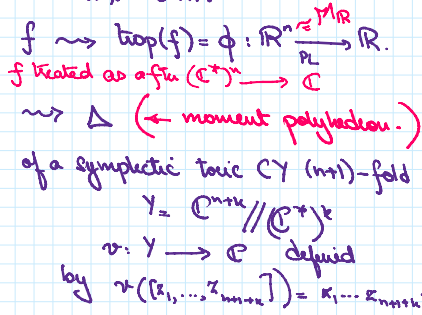 f ⇝ trop(f) = ϕ : ℝⁿ ≈ M_ℝ ⟶ ℝ.
PL
f treated as a fn (ℂ*)ⁿ ⟶ ℂ
⇝ Δ (← moment polyhedron.)
of a symplectic toric CY (n+1)-fold
Y = ℂⁿ⁺ᵏ // (ℂ*)ᵏ
v : Y ⟶ ℂ defined
by v([z₁,...,z_{n+1+k}]) = z₁...z_{n+1+k}